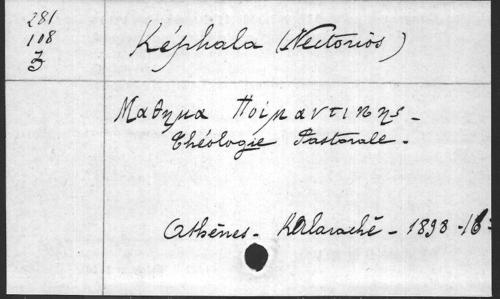 281
108
3
Képhala (Nectorios)
Μαθημα Ποιμαντικης -
Théologie Pastorale -
Athènes - Kalaraché - 1898 - 16